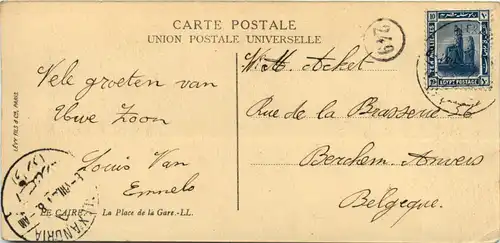 CARTE POSTALE
UNION POSTALE UNIVERSELLE
249
EGYPT POSTAGE
Mr A. Acket
Vele groeten van
Uwe Zoon
Rue de la Brasserie 26
Louis Van
Emmelo
Berchem. Anvers
Belgeque.
LÉVY FILS & CIE, PARIS
ALEXANDRIA
LE CAIRE. — La Place de la Gare.-LL.